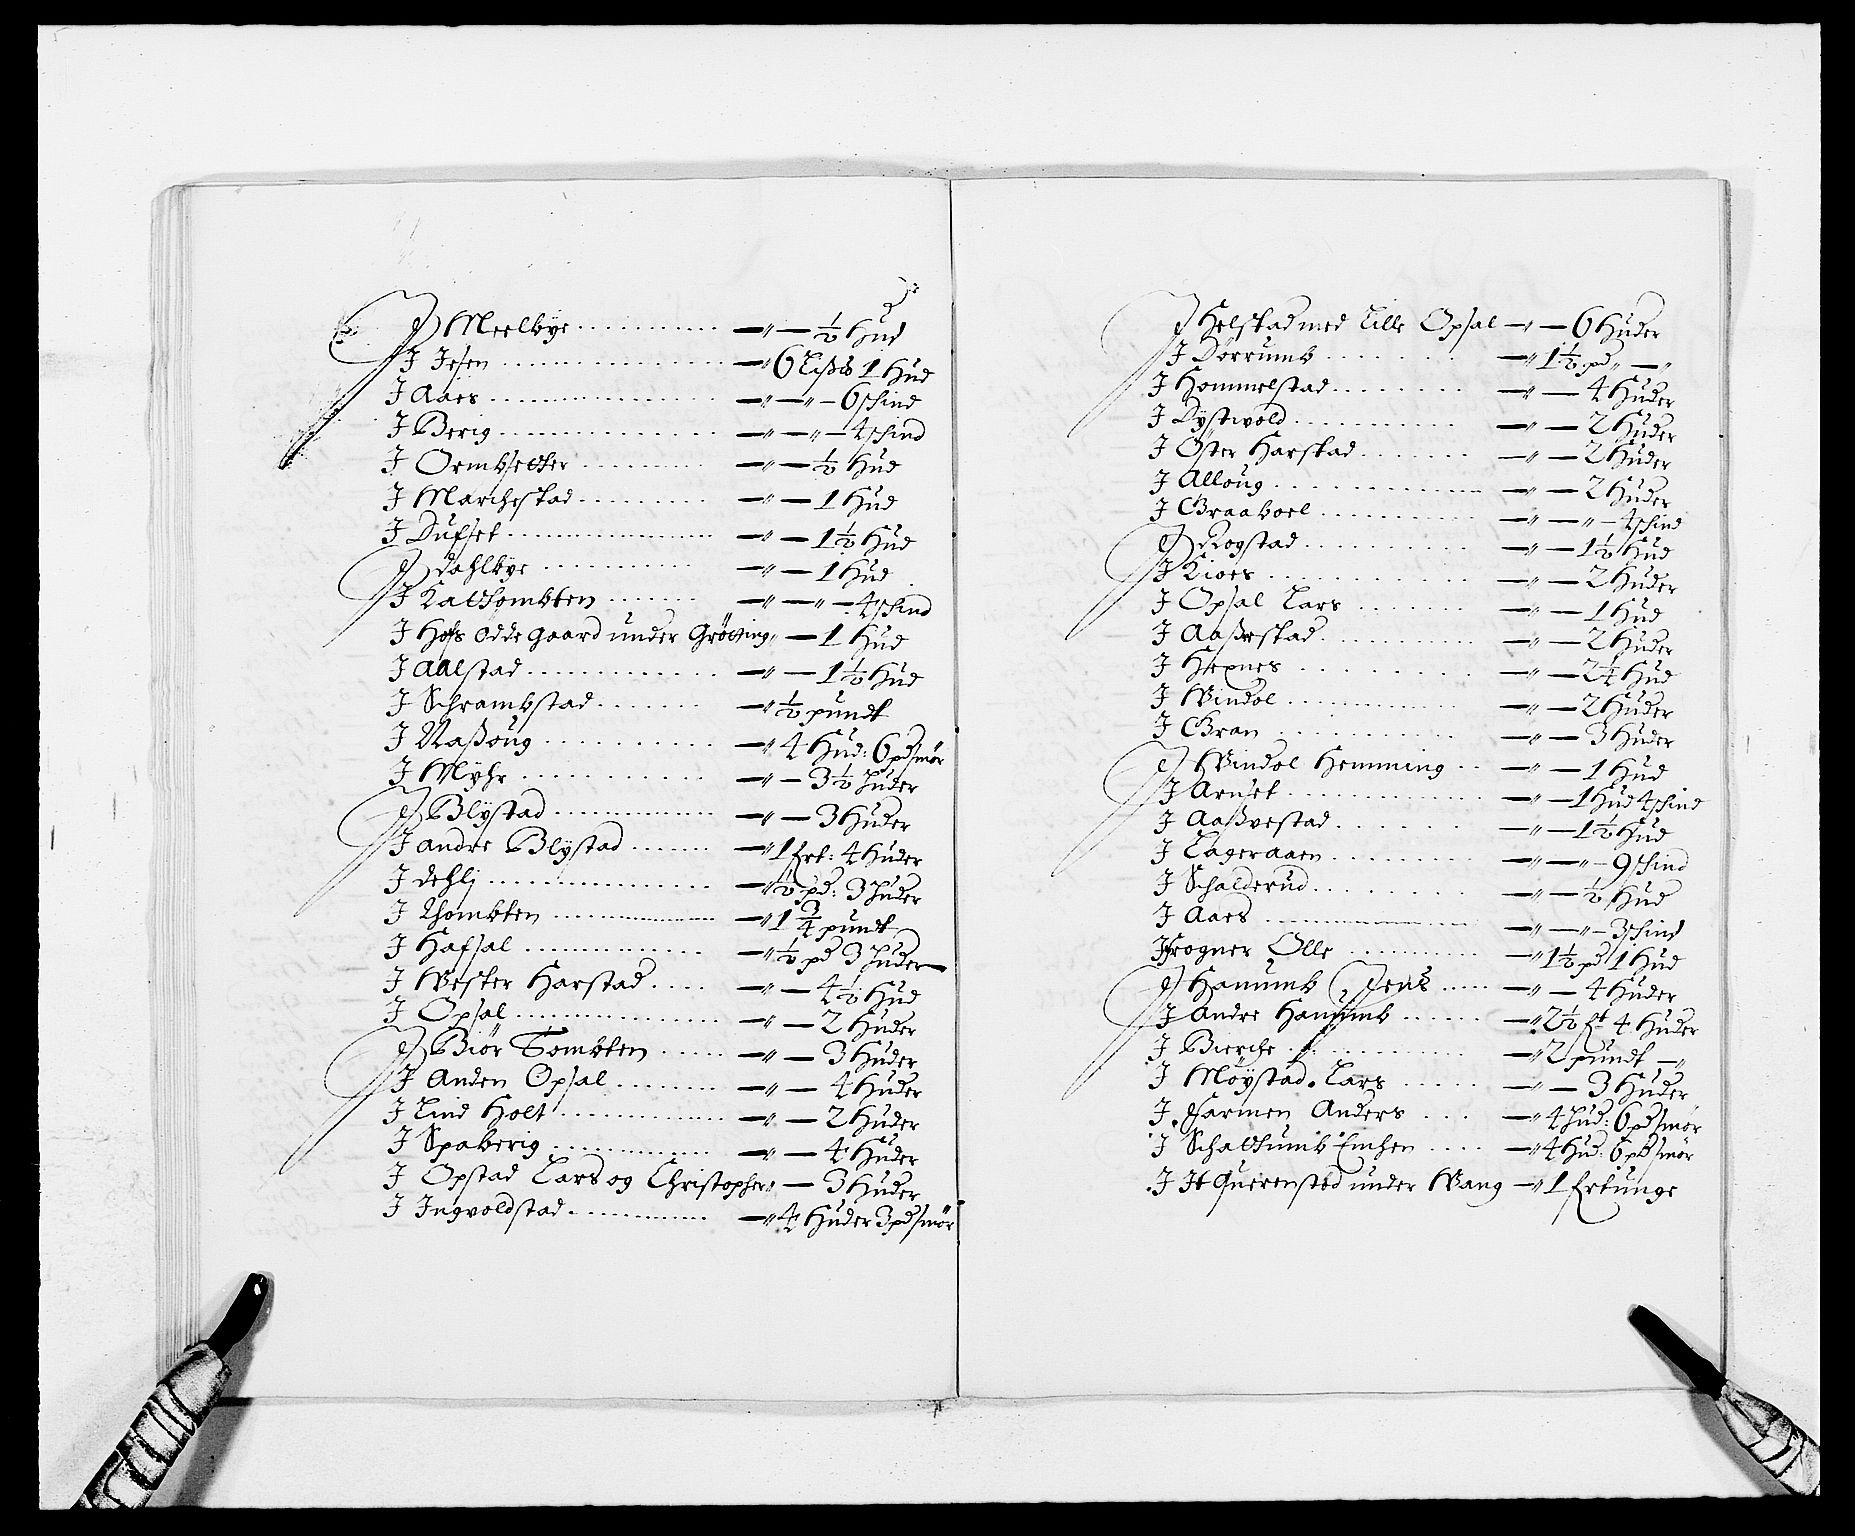 J Meelbye - ½ Hud
J Jesen - 6 Lisb 1 Hud
J Aaes - 6 schind
J Berig - 4 schind
J Ormbsetter - ½ Hud
J Marchestad - 1 Hud
J Dufset - 1½ Hud
J Dahlbye - 1 Hud
J Katthombten - 4 schind
J Hofs Odde gaard under Grötting - 1 Hud
J Aalstad - 1½ Hud
J Schrambstad - ½ pundt
J Naßoug - 4 Hud: 6 pd smör
J Myhr - 3½ Huder
J Blÿstad - 3 Huder
J andre Blÿstad - 1 Frt: 4 Huder
J dehlj - ½ pd: 3 Huder
J Thombten - 1¾ pundt
J Hafsal - ½ pd 3 Huder
J Wester Harstad - 4½ Hud
J Opsal - 2 Huder
J Biör Tombten - 3 Huder
J Anden Opsal - 4 Huder
J Lind Holt - 2 Huder
J Spaberig - 4 Huder
J Opstad Lars og Christopher - 3 Huder
J Jngvoldstad - 4 Huder 3 pd smör
J Helstad med Lille Opsal - 6 Huder
J Dörrumb - 1½ pd
J Hommelstad - 4 Huder
J Dÿstvold - 2 Huder
J Öster Harstad - 2 Huder
J Alloug - 2 Huder
J Graaboel - 4 schind
J Rogstad - 1½ Hud
J Kioes - 2 Huder
J Opsal Lars - 1 Hud
J Aaßestad - 2 Huder
J Hexnes - 2¼ Hud
J Windol - 2 Huder
J Gran - 3 Huder
J Windol Hemming - 1 Hud
J Arnset - 1 Hud 4 schind
J Aaßvestad - 1½ Hud
J Lageraaen - 9 schind
J Schalderud - ½ Hud
J Aaes - 3 schind
J Frogner Olle - 1½ pd 1 Hud
J Hanumb Jens - 4 Huder
J Andre Hanumb - 2½ ft 4 Huder
J Bierche - 2 pundt
J Möÿstad Lars - 3 Huder
J Farmen Anders - 4 Hud: 6 pd smör
J Schattumb Emhen - 4 Hud: 6 pd smör
J Jt Querensted under Wang - 1 Fertunge